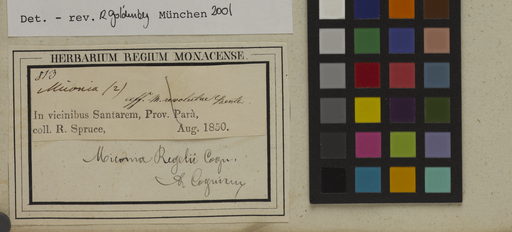 Det. - rev. R Goldenberg München 2001
HERBARIUM REGIUM MONACENSE.
813
Miconia (2)
aff. M.
In vicinibus Santarem, Prov. Parà,
coll. R. Spruce, Aug. 1850.
Miconia Regelii Cogn.
A Cogniaux